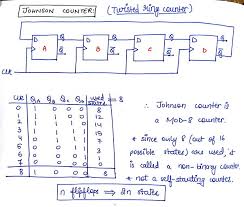 JOHNSON COUNTER: (Twisted ring counter)
D Q D Q D Q D Q
A B C D
Q̄ Q̄ Q̄ Q̄
CLK
CLK QA QB QC QD used states = 8
0 0 0 0 0 0
1 1 0 0 0 8
2 1 1 0 0 12
3 1 1 1 0 14
4 1 1 1 1 15
5 0 1 1 1 7
6 0 0 1 1 3
7 0 0 0 1 1
8 0 0 0 0
∴ Johnson counter is
a Mod-8 counter.
* since only 8 (out of 16
possible states) are used, it
is called a non-binary counter
* not a self-starting counter.
n flipflops ⇒ 2n states